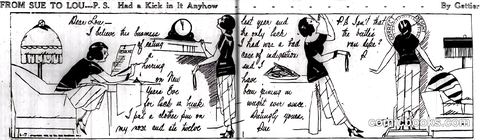 FROM SUE TO LOU—P. S. Had a Kick in It Anyhow
By Gettier
Dear Lou—
I believe this business
of eating
a
herring
on New
Years Eve
for luck is bunk
I put a clothes pin on
my nose and ate twelve
last year and
the only luck
I had was a bad
case of indigestion
and I
have
been gaining in
weight ever since.
Lovingly yours,
Sue
P.S. Isn't that
the
you
comicbooks.com